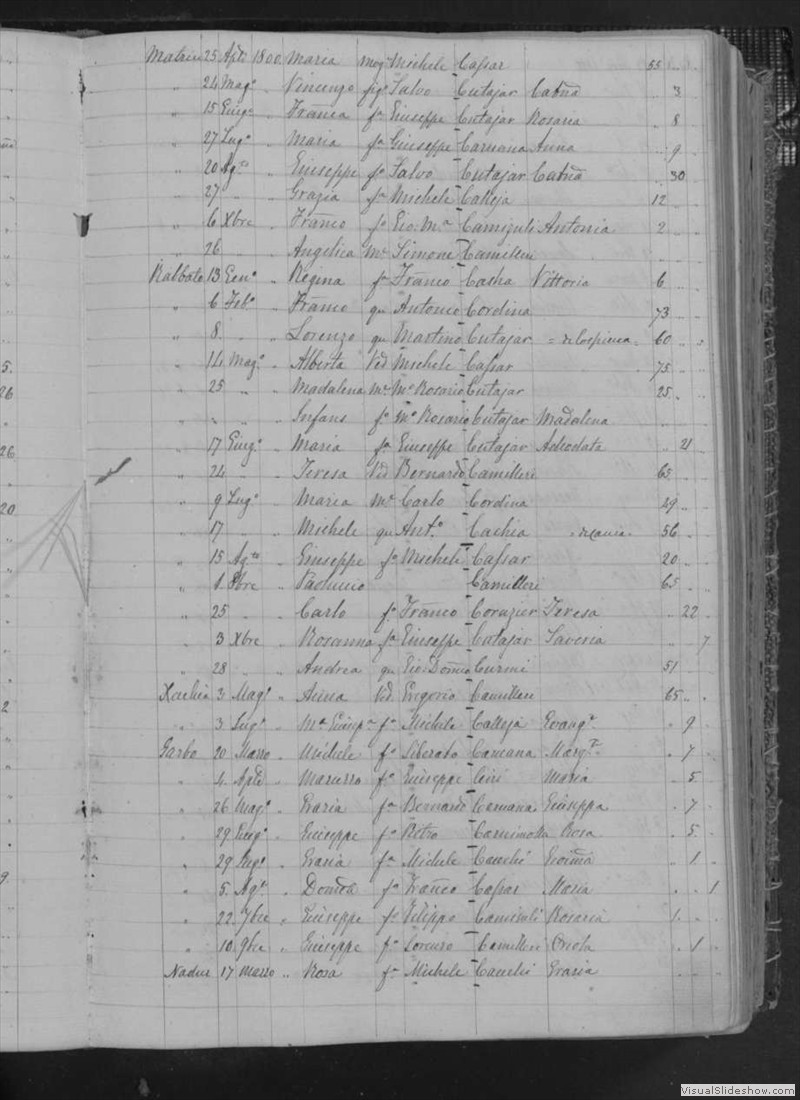 Matrice 25 Aple 1800 Maria mog. Michele Cassar 55
" 24 Mago " Vincenzo fo Salvo Cutajar Catna 3
" 15 Giugo " Franca fa Giuseppe Cutajar Rosaria 8
" 27 Lugo " Maria fa Giuseppe Caruana Anna 9
" 20 Agto " Giuseppe fo Salvo Cutajar Catna 30
" 27 " " Grazia fa Michele Calleja 12
" 6 Xbre " Franco fo Gio. Ma Antonia 2
" 26 " " Angelica Simone Camilleri
Rabbato 13 Geno " Regina fa Franco Cachia Vittoria 6
" 6 Febo " Franco qu Antonio Cordina 73
" 8 " " Lorenzo qu Martino Cutajar 60
" 14 Mago " Alberta Vid Michele Cassar 75
" 25 " " Madalena Mo Rosario Cutajar 25
" " " " Infans fo Mo Rosario Cutajar Madalena
" 17 Giugo " Maria fa Giuseppe Cutajar Adeodata 21
" 24 " " Teresa Vid Bernardo Camilleri 65
" 9 Lugo " Maria Carlo Cordina 29
" 17 " " Michele qu Anto Cachia 56
" 15 Agto " Giuseppe fo Michele Cassar 20
" 1 8bre " Camilleri 65
" 25 " " Carlo fo Franco Teresa 22
" 3 Xbre " Rosanna fa Giuseppe Cutajar Saveria 7
" 28 " " Andrea qu Gio Domco Curmi 51
3 Mago " Anna Vid. Gregorio Camilleri 65
" 3 Lugo " Ma Giusepa fa Michele Calleja Evanga 9
Garbo 20 Marzo " Michele fo Liberato Caruana Margta 7
" 4 Aple " fo Giuseppe Maria 5
" 26 Mago " Grazia fa Bernardo Caruana Giuseppa 7
" 29 Giugo " Giuseppe fo Pietro Rosa 5
" 29 Lugo " Grazia fa Michele 1
" 5 Agto " Domca fa Franco Cassar Maria 1
" 22 7bre " Giuseppe fo Filippo Rosaria 1
" 10 9bre " Giuseppe fo Lorenzo Camilleri 1
Nadur 17 Marzo " Rosa fa Michele Grazia
VisualSlideshow.com